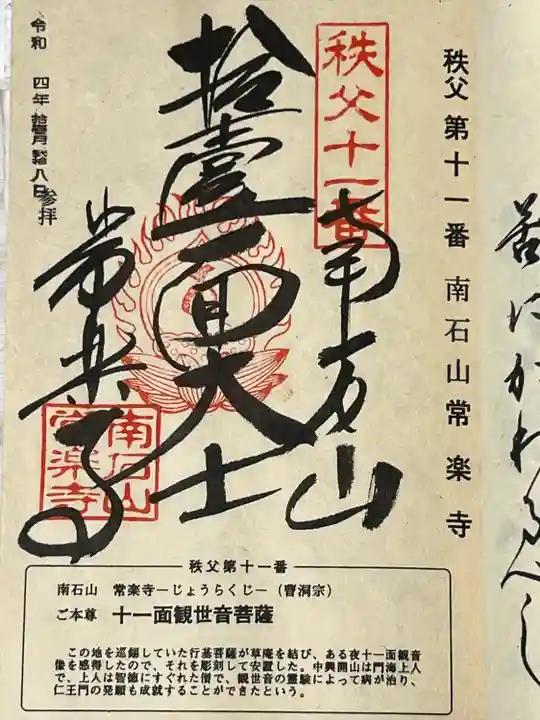 秩父 第十一番 南石山 常楽寺
秩父十一番
南石山
拾壹面大士
常楽寺
南石山
常楽寺
令和 四年 拾壹月 八日 参拝
秩父第十一番
南石山 常楽寺—じょうらくじ—(曹洞宗)
ご本尊 十一面観世音菩薩
この地を巡錫していた行基菩薩が草庵を結び、ある夜十一面観音
像を感得したので、それを彫刻して安置した。中興開山は門海上人
で、上人は智徳にすぐれた僧で、観世音の霊験によって病が治り、
仁王門の発願も成就することができたという。